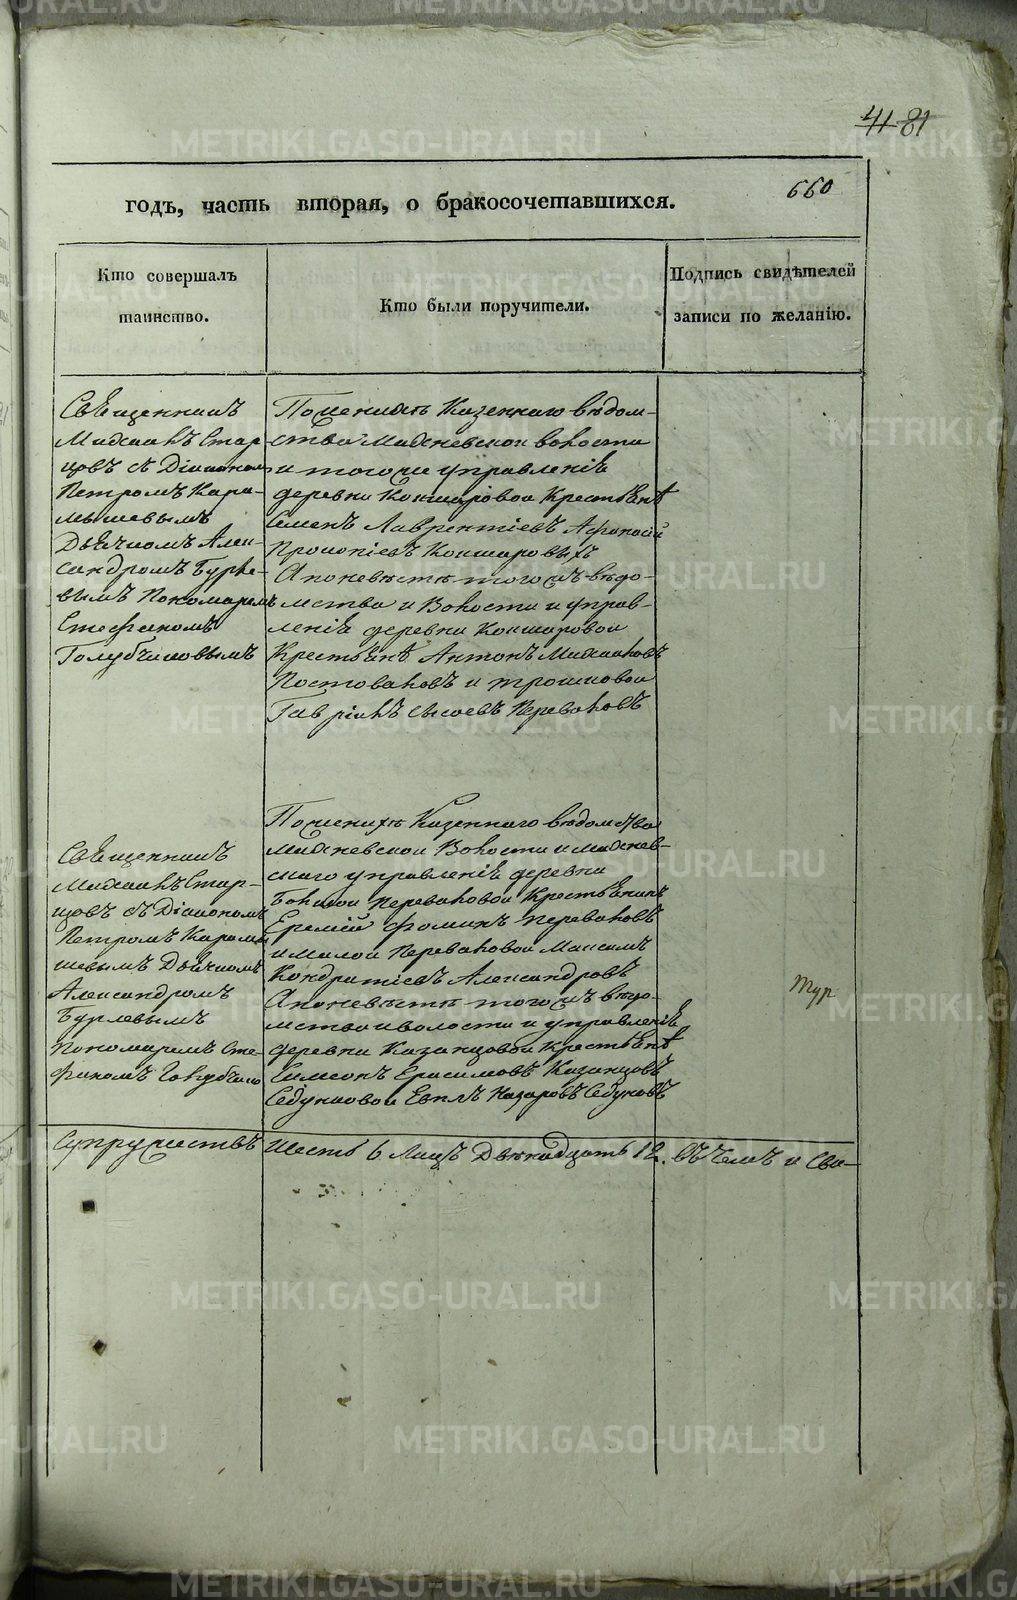 41 81
660
годъ, часть вторая, о бракосочетавшихся.
Кто совершалъ
таинство.
Кто были поручители.
Подпись свидѣтелей
записи по желанію.
Священникъ
Михаилъ Стар-
цовъ съ Діакономъ
Петромъ Кара-
мышевымъ
Дьячкомъ Алек-
сандромъ Бурле-
вымъ Пономаремъ
Стефаномъ
Голубчиковымъ
По женихѣ Казеннаго вѣдом-
ства Маханевской волости
и того же управленія
деревни Кокшаровой Крестьянѣ
Семенъ Лаврентіевъ Афонасій
Прокопіевъ Кокшаровыхъ
А по невѣстѣ того жъ вѣдо-
мства и Волости и управ-
ленія деревни Кокшаровой
Крестьянѣ Антонъ Михаиловъ
Постоваловъ и трошковой
Гаврілъ Сысоевъ Переваловъ
Священникъ
Михаилъ Стар-
цовъ съ Діакономъ
Петромъ Карамы-
шевымъ Дьячкомъ
Александромъ
Бурлевымъ
Пономаремъ Сте-
фаномъ Голубчико
По женихѣ Казеннаго вѣдомства
Маханевской Волости и маханев-
скаго управленія деревни
Большой Переваловой Крестьянинъ
Еремій Фоминъ Переваловъ
и малой Переваловой Максимъ
Кондратіевъ Александровъ
А по невѣстѣ того жъ вѣдо-
мства и волости и управленія
деревни Казанцовой Крестьянѣ
Симеонъ Ерасимовъ Казанцовъ
Седунковой Евплъ Назаровъ Седуновъ
тур
Супружествъ Шесть 6 Лицъ Двѣнадцать 12. Въ чемъ и Сви-
METRIKI.GASO-URAL.RU